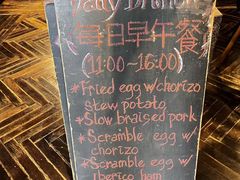 Daily Brunch
每日早午餐
(11:00~16:00)
*Fried egg w/chorizo
stew potato
*Slow braised pork
*Scramble egg w/
chorizo
*Scramble egg w/
iberico ham